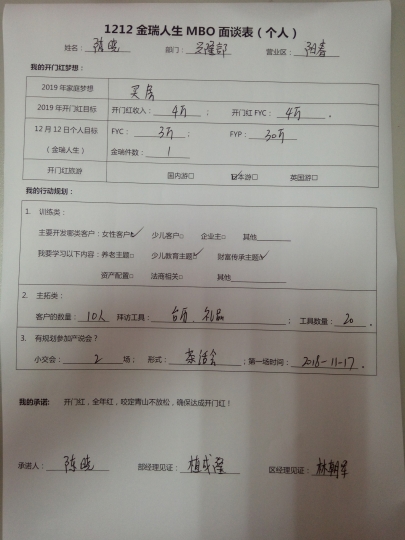 1212 金瑞人生 MBO 面谈表（个人）
姓名：陈晓 部门： 营业区：阳春
我的开门红梦想：
2019 年家庭梦想 买房
2019 年开门红目标 开门红收入：4万； 开门红 FYC：4万.
12 月 12 日个人目标 FYC：3万； FYP：30万
（金瑞人生） 金瑞件数：1
开门红旅游 国内游□ 日本游☑ 英国游□
我的行动规划：
1. 训练类：
主要开发哪类客户：女性客户✓ 少儿客户○ 企业主○ 其他
我要学习以下内容：养老主题○ 少儿教育主题✓ 财富传承主题✓
资产配置○ 法商相关○ 其他
2. 主拓类：
客户的数量：10人 拜访工具：台历、礼品； 工具数量：20.
3. 有规划参加产说会？
小交会：2 场； 形式：茶话会；第一场时间：2018-11-17.
我的承诺: 开门红，全年红，咬定青山不放松，确保达成开门红！
承诺人：陈晓 部经理见证： 区经理见证：林朝军